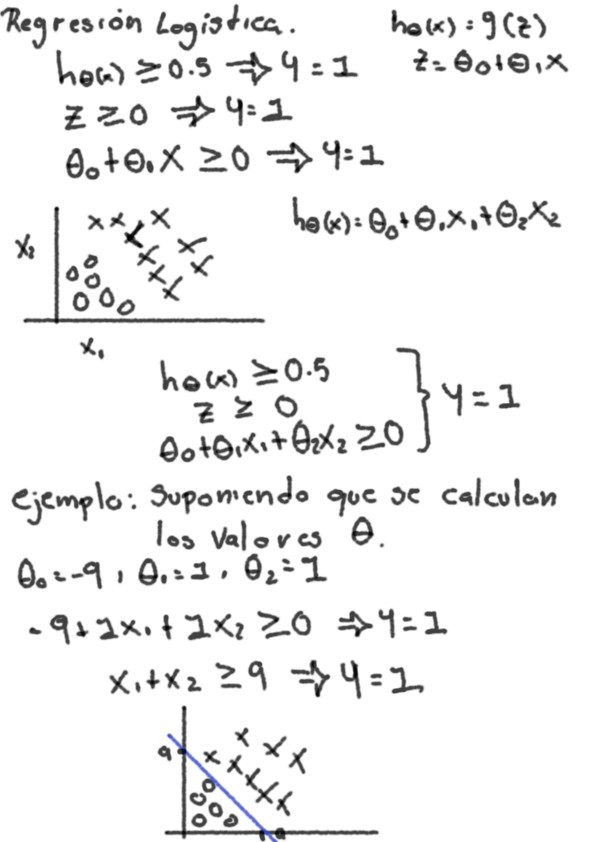 Regresión Logistica.
hθ(x) = g(z)
z = θ₀ + θ₁x
hθ(x) ≥ 0.5 ⇒ y = 1
z ≥ 0 ⇒ y = 1
θ₀ + θ₁x ≥ 0 ⇒ y = 1
hθ(x) = θ₀ + θ₁x₁ + θ₂x₂
x₂
x₁
hθ(x) ≥ 0.5
z ≥ 0
θ₀ + θ₁x₁ + θ₂x₂ ≥ 0
y = 1
ejemplo: Suponiendo que se calculan
los valores θ.
θ₀ = -9, θ₁ = 1, θ₂ = 1
-9 + 1x₁ + 1x₂ ≥ 0 ⇒ y = 1
x₁ + x₂ ≥ 9 ⇒ y = 1
9
9